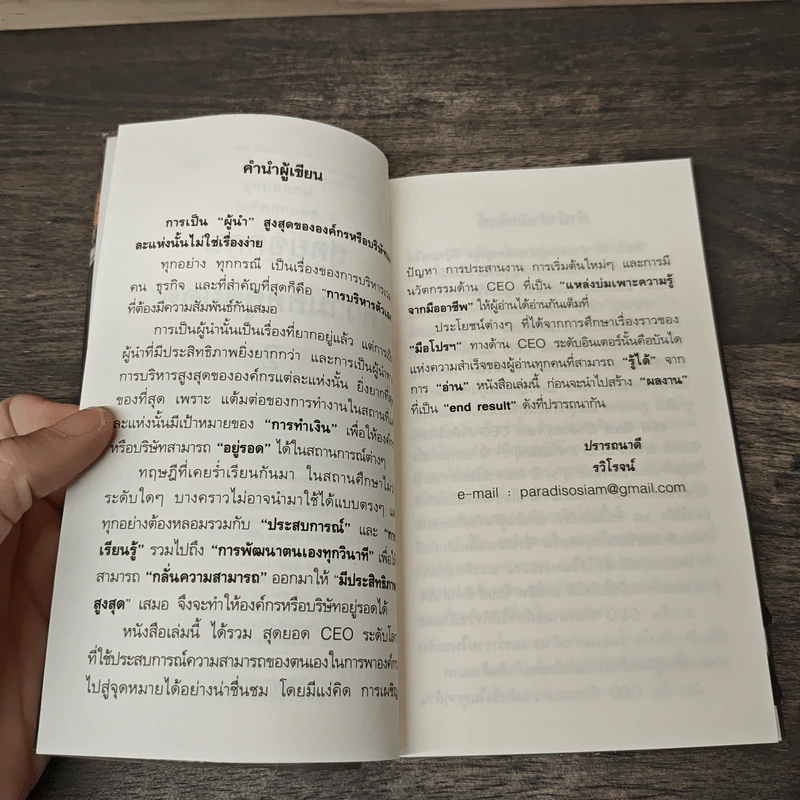 คำนำผู้เขียน
การเป็น “ผู้นำ” สูงสุดขององค์กรหรือบริษัท
ละแห่งนั้นไม่ใช่เรื่องง่าย
ทุกอย่าง ทุกกรณี เป็นเรื่องของการบริหาร
คน ธุรกิจ และที่สำคัญที่สุดก็คือ “การบริหารตัวเอง
ที่ต้องมีความสัมพันธ์กันเสมอ
การเป็นผู้นำนั้นเป็นเรื่องที่ยากอยู่แล้ว แต่การเป็น
ผู้นำที่มีประสิทธิภาพยิ่งยากกว่า และการเป็นผู้นำ
การบริหารสูงสุดขององค์กรแต่ละแห่งนั้น ยิ่งยากที่สุด
ของที่สุด เพราะ แต้มต่อของการทำงานในสถานที่
ละแห่งนั้นมีเป้าหมายของ “การทำเงิน” เพื่อให้องค์กร
หรือบริษัทสามารถ “อยู่รอด” ได้ในสถานการณ์ต่างๆ
ทฤษฎีที่เคยร่ำเรียนกันมา ในสถานศึกษาไม่ว่า
ระดับใดๆ บางคราวไม่อาจนำมาใช้ได้แบบตรงๆ
ทุกอย่างต้องหลอมรวมกับ “ประสบการณ์” และ “การ
เรียนรู้” รวมไปถึง “การพัฒนาตนเองทุกวินาที” เพื่อให้
สามารถ “กลั่นความสามารถ” ออกมาให้ “มีประสิทธิภาพ
สูงสุด” เสมอ จึงจะทำให้องค์กรหรือบริษัทอยู่รอดได้
หนังสือเล่มนี้ ได้รวม สุดยอด CEO ระดับโลก
ที่ใช้ประสบการณ์ความสามารถของตนเองในการพาองค์กร
ไปสู่จุดหมายได้อย่างน่าชื่นชม โดยมีแง่คิด การเผชิญ
ปัญหา การประสานงาน การเริ่มต้นใหม่ๆ และการมี
นวัตกรรมด้าน CEO ที่เป็น “แหล่งบ่มเพาะความรู้
จากมืออาชีพ” ให้ผู้อ่านได้อ่านกันเต็มที่
ประโยชน์ต่างๆ ที่ได้จากการศึกษาเรื่องราวของ
“มือโปรฯ” ทางด้าน CEO ระดับอินเตอร์นั้นคือบันได
แห่งความสำเร็จของผู้อ่านทุกคนที่สามารถ “รู้ได้” จาก
การ “อ่าน” หนังสือเล่มนี้ ก่อนจะนำไปสร้าง “ผลงาน”
ที่เป็น “end result” ดังที่ปรารถนากัน
ปรารถนาดี
รวิโรจน์
e-mail : paradisosiam@gmail.com